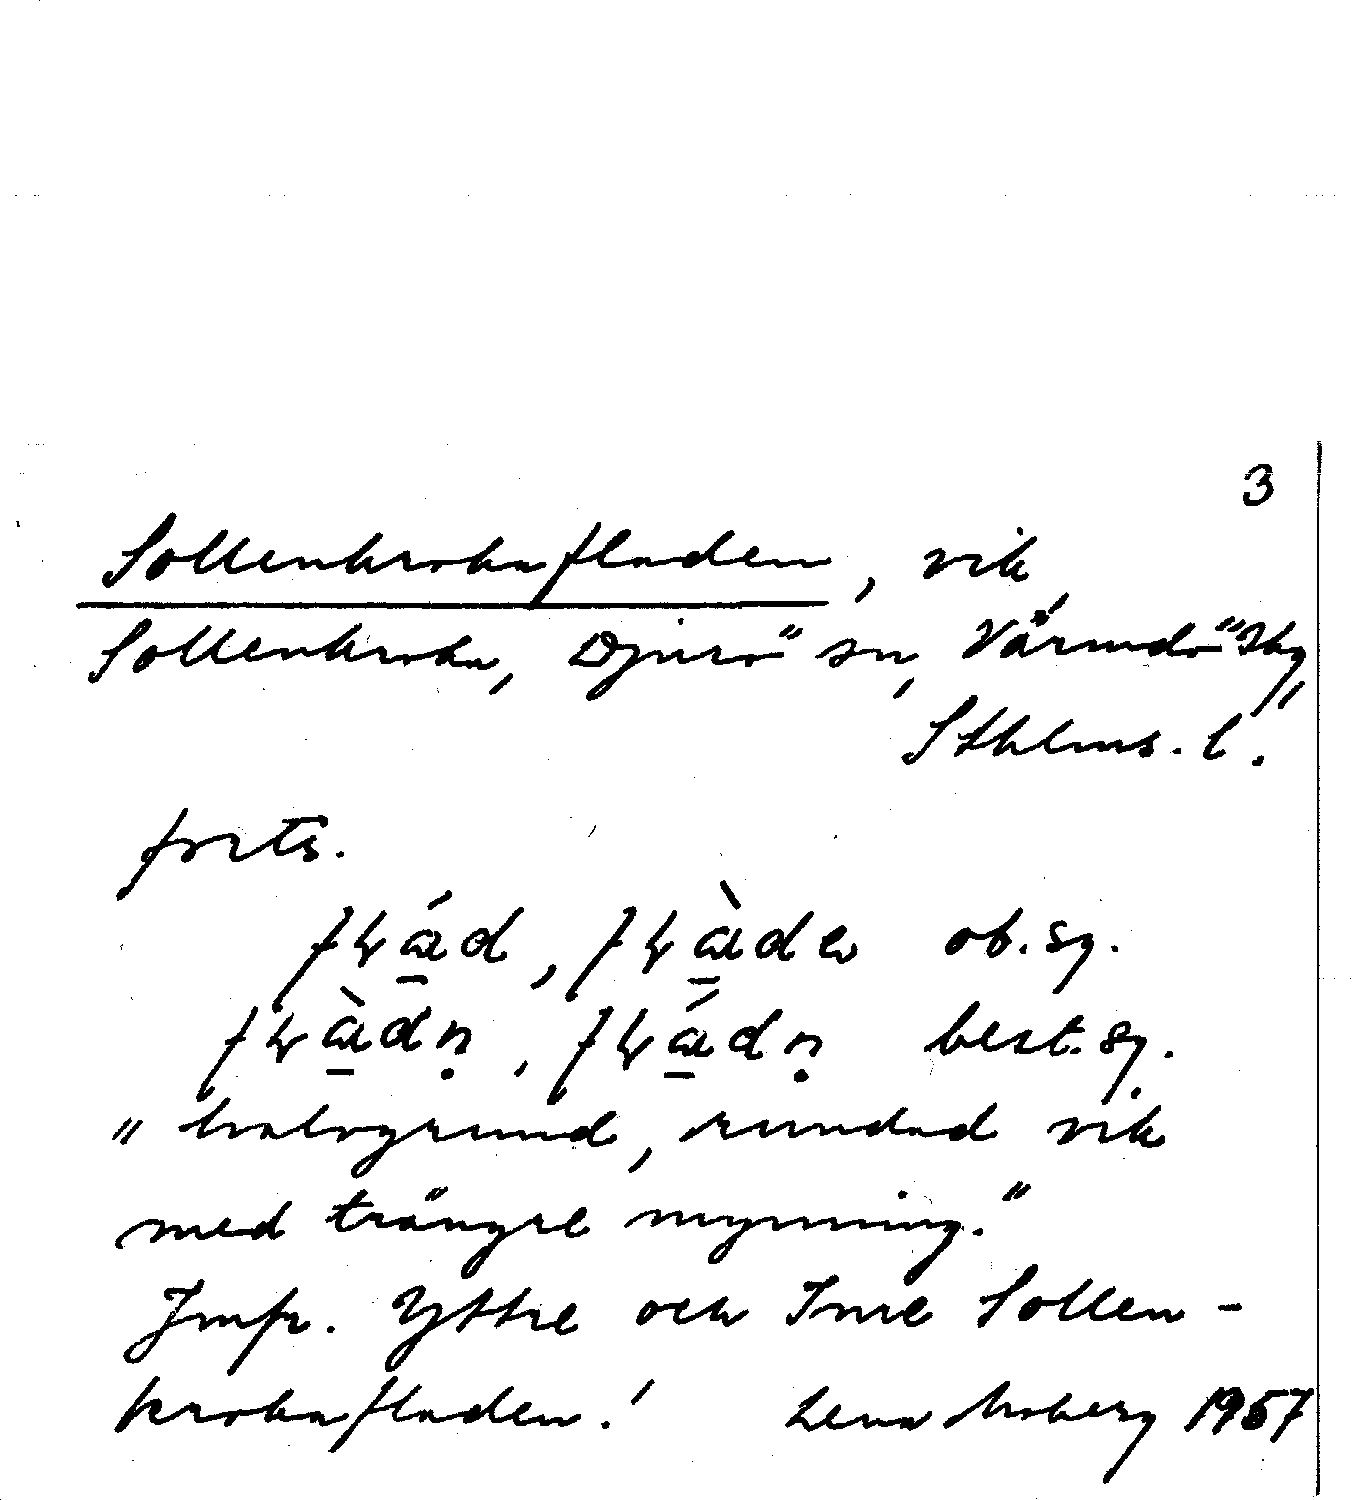 3
Sollenkrokafladen, vik
Sollenkroka, Djurö sn, Värmdö skg,
Sthlms. l.
forts.
ob. sg.
best. sg.
" halvgrund, rundad vik
med trängre mynning."
Jmfr. Yttre och Inre Sollen-
krokafladen.'
Lena Moberg 1967